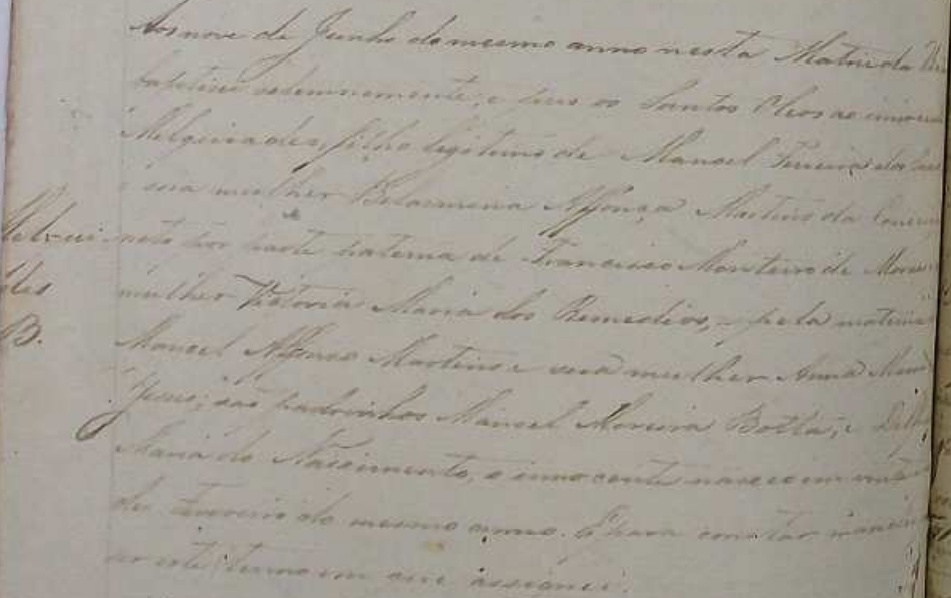 Aos nove de Junho do mesmo anno nesta Matriz da
baptisei solemnemente, e puz os Santos Oleos ao
Melquiades, filho legitimo de Manoel Ferreira da
e sua mulher Belarmina Affonça Martins da
neto por parte paterna de Francisco Monteiro de
mulher Victoria Maria dos Remedios, e pela materna
Manoel Affonso Martins e sua mulher Anna Maria
Jesus; são padrinhos Manoel Moreira Botta, e
Maria do Nascimento, o innocente nasceo em
de Fevereiro do mesmo anno. E para constar mandei
este termo em que assignei.
Melqui
des
B.